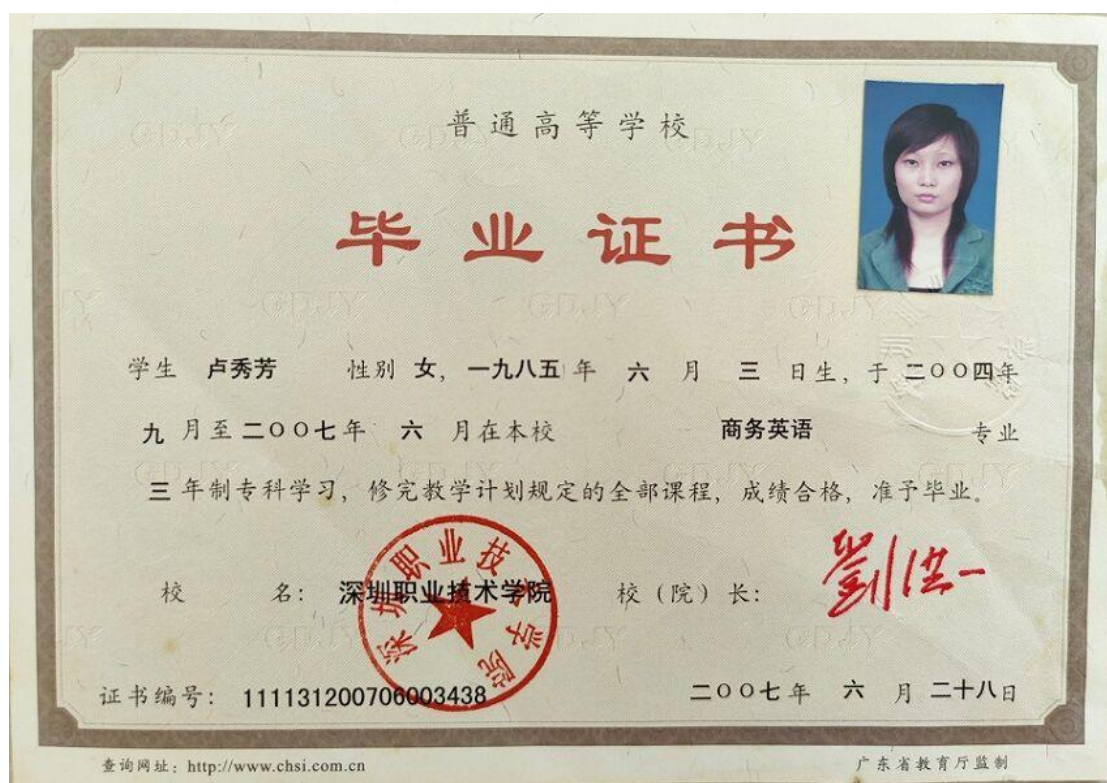 普通高等学校
毕业证书
学生 卢秀芳 性别 女，一九八五年 六 月 三 日生，于 二〇〇四年
九 月至二〇〇七年 六 月在本校 商务英语 专业
三 年制专科学习，修完教学计划规定的全部课程，成绩合格，准予毕业。
校 名：深圳职业技术学院 校（院）长：劉洪一
深圳职业技术学院
证书编号：111131200706003438 二〇〇七年 六 月 二十八日
查询网址：http://www.chsi.com.cn 广东省教育厅监制
GDJY